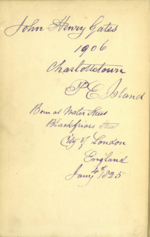 John Henry Gates
1906
Charlottetown
P E Island
Born at Water Street
Blackfriars
City of London
England
Jany 4th 1825